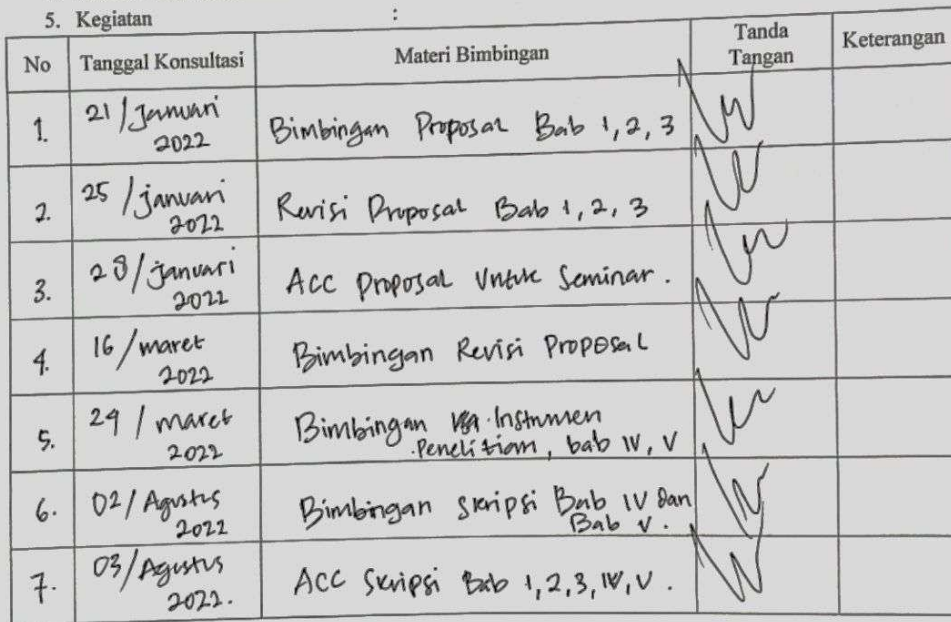 5. Kegiatan :
No Tanggal Konsultasi Materi Bimbingan Tanda Tangan Keterangan
1. 21/Januari 2022 Bimbingan Proposal Bab 1, 2, 3
2. 25/januari 2022 Revisi Proposal Bab 1, 2, 3
3. 28/januari 2022 ACC Proposal Untuk Seminar.
4. 16/maret 2022 Bimbingan Revisi Proposal
5. 29/maret 2022 Bimbingan Instrumen Penelitian, bab IV, V
6. 02/Agustus 2022 Bimbingan Skripsi Bab IV dan Bab V.
7. 03/Agustus 2022. ACC Skripsi Bab 1, 2, 3, IV, V.